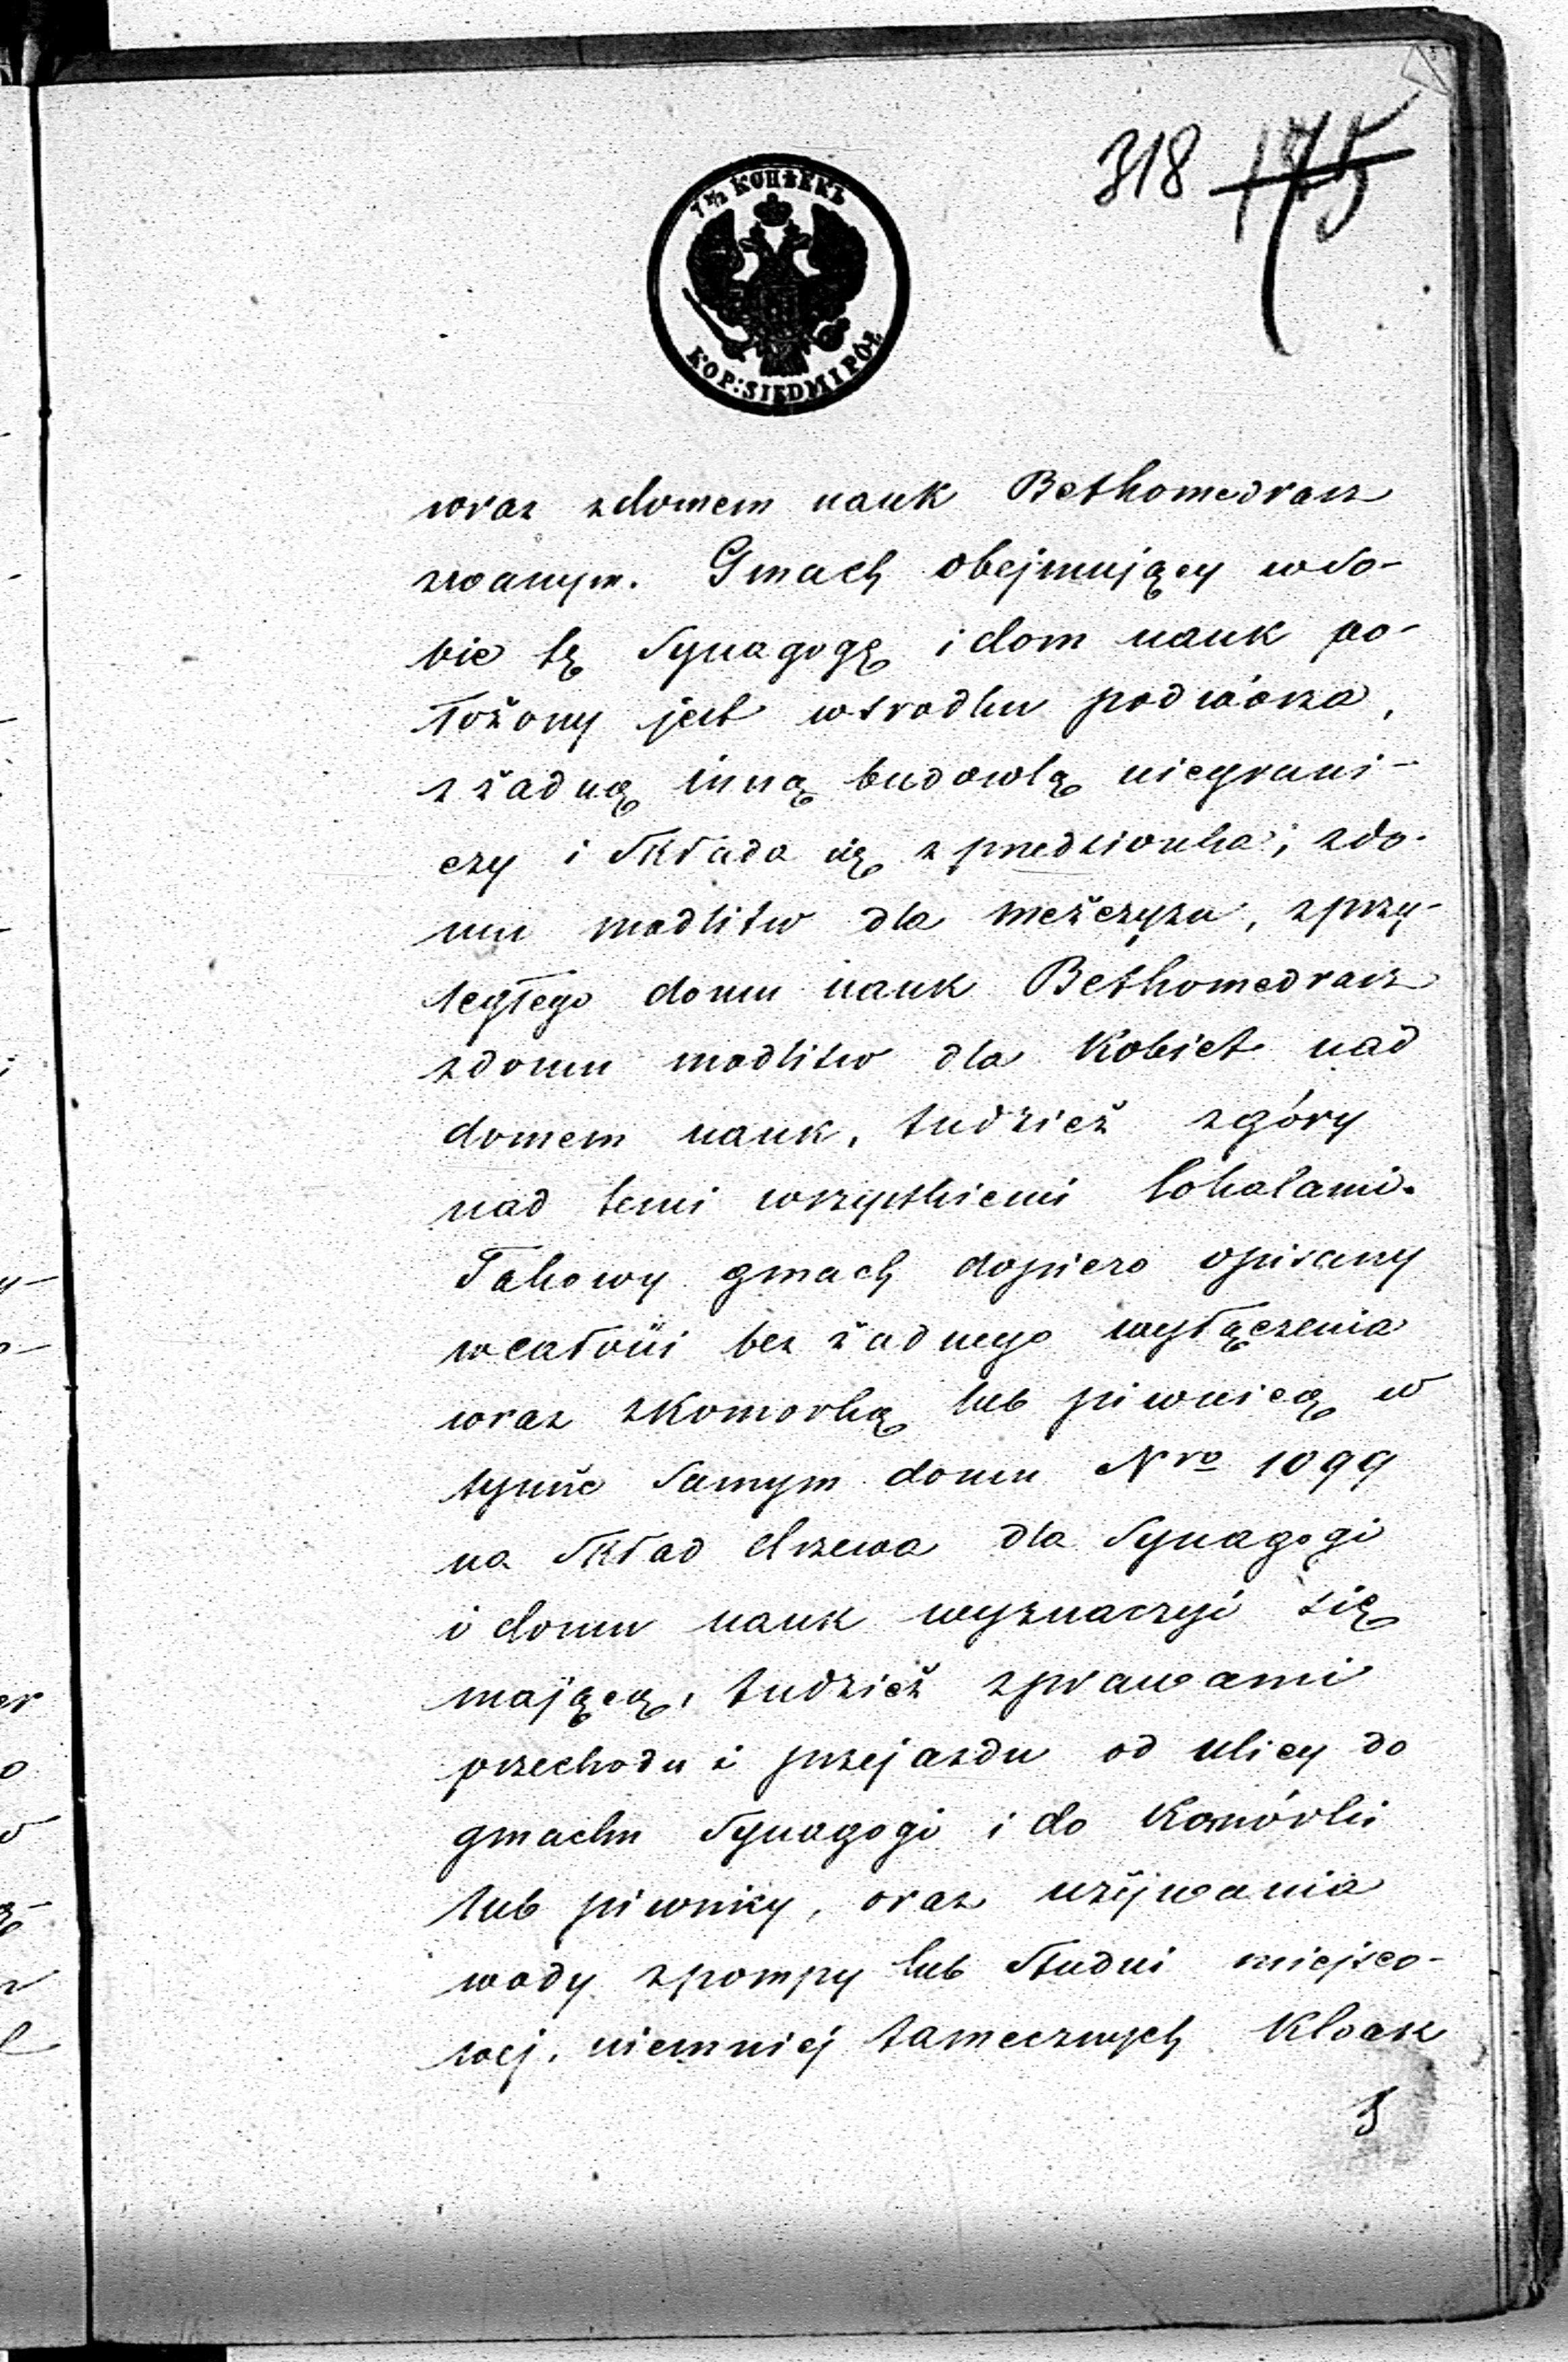 318 175
7 1/2 КОПѢЕКЪ
KOP: SIEDM I PÓŁ
wraz z domem nauk Bethomedrasz
zwanym. Gmach obejmujący w so-
bie tę Synagogę i dom nauk po-
łożony jest w srodku podwórza,
z żadną inną budowlą niegrani-
czy i składa się z przedsionka, z do-
mu modlitw dla meżczyzn, z przy-
ległego domu nauk Bethomedrasz
z domu modlitw dla Kobiet nad
domem nauk, tudzież z góry
nad temi wszystkiemi lokalami.
Takowy gmach dopiero opisany
w całości bez żadnego wyłączenia
wraz z Komorką lub piwnicą w
tymże samym domu Nro 1099
na skład drzewa dla Synagogi
i domu nauk wyznaczyć się
mającą, tudzież z prawami
przechodu i przejazdu od ulicy do
gmachu Synagogi i do Komórki
lub piwnicy, oraz używania
wody z pompy lub Studni miejsco-
wej, niemniej tamecznych Kloak